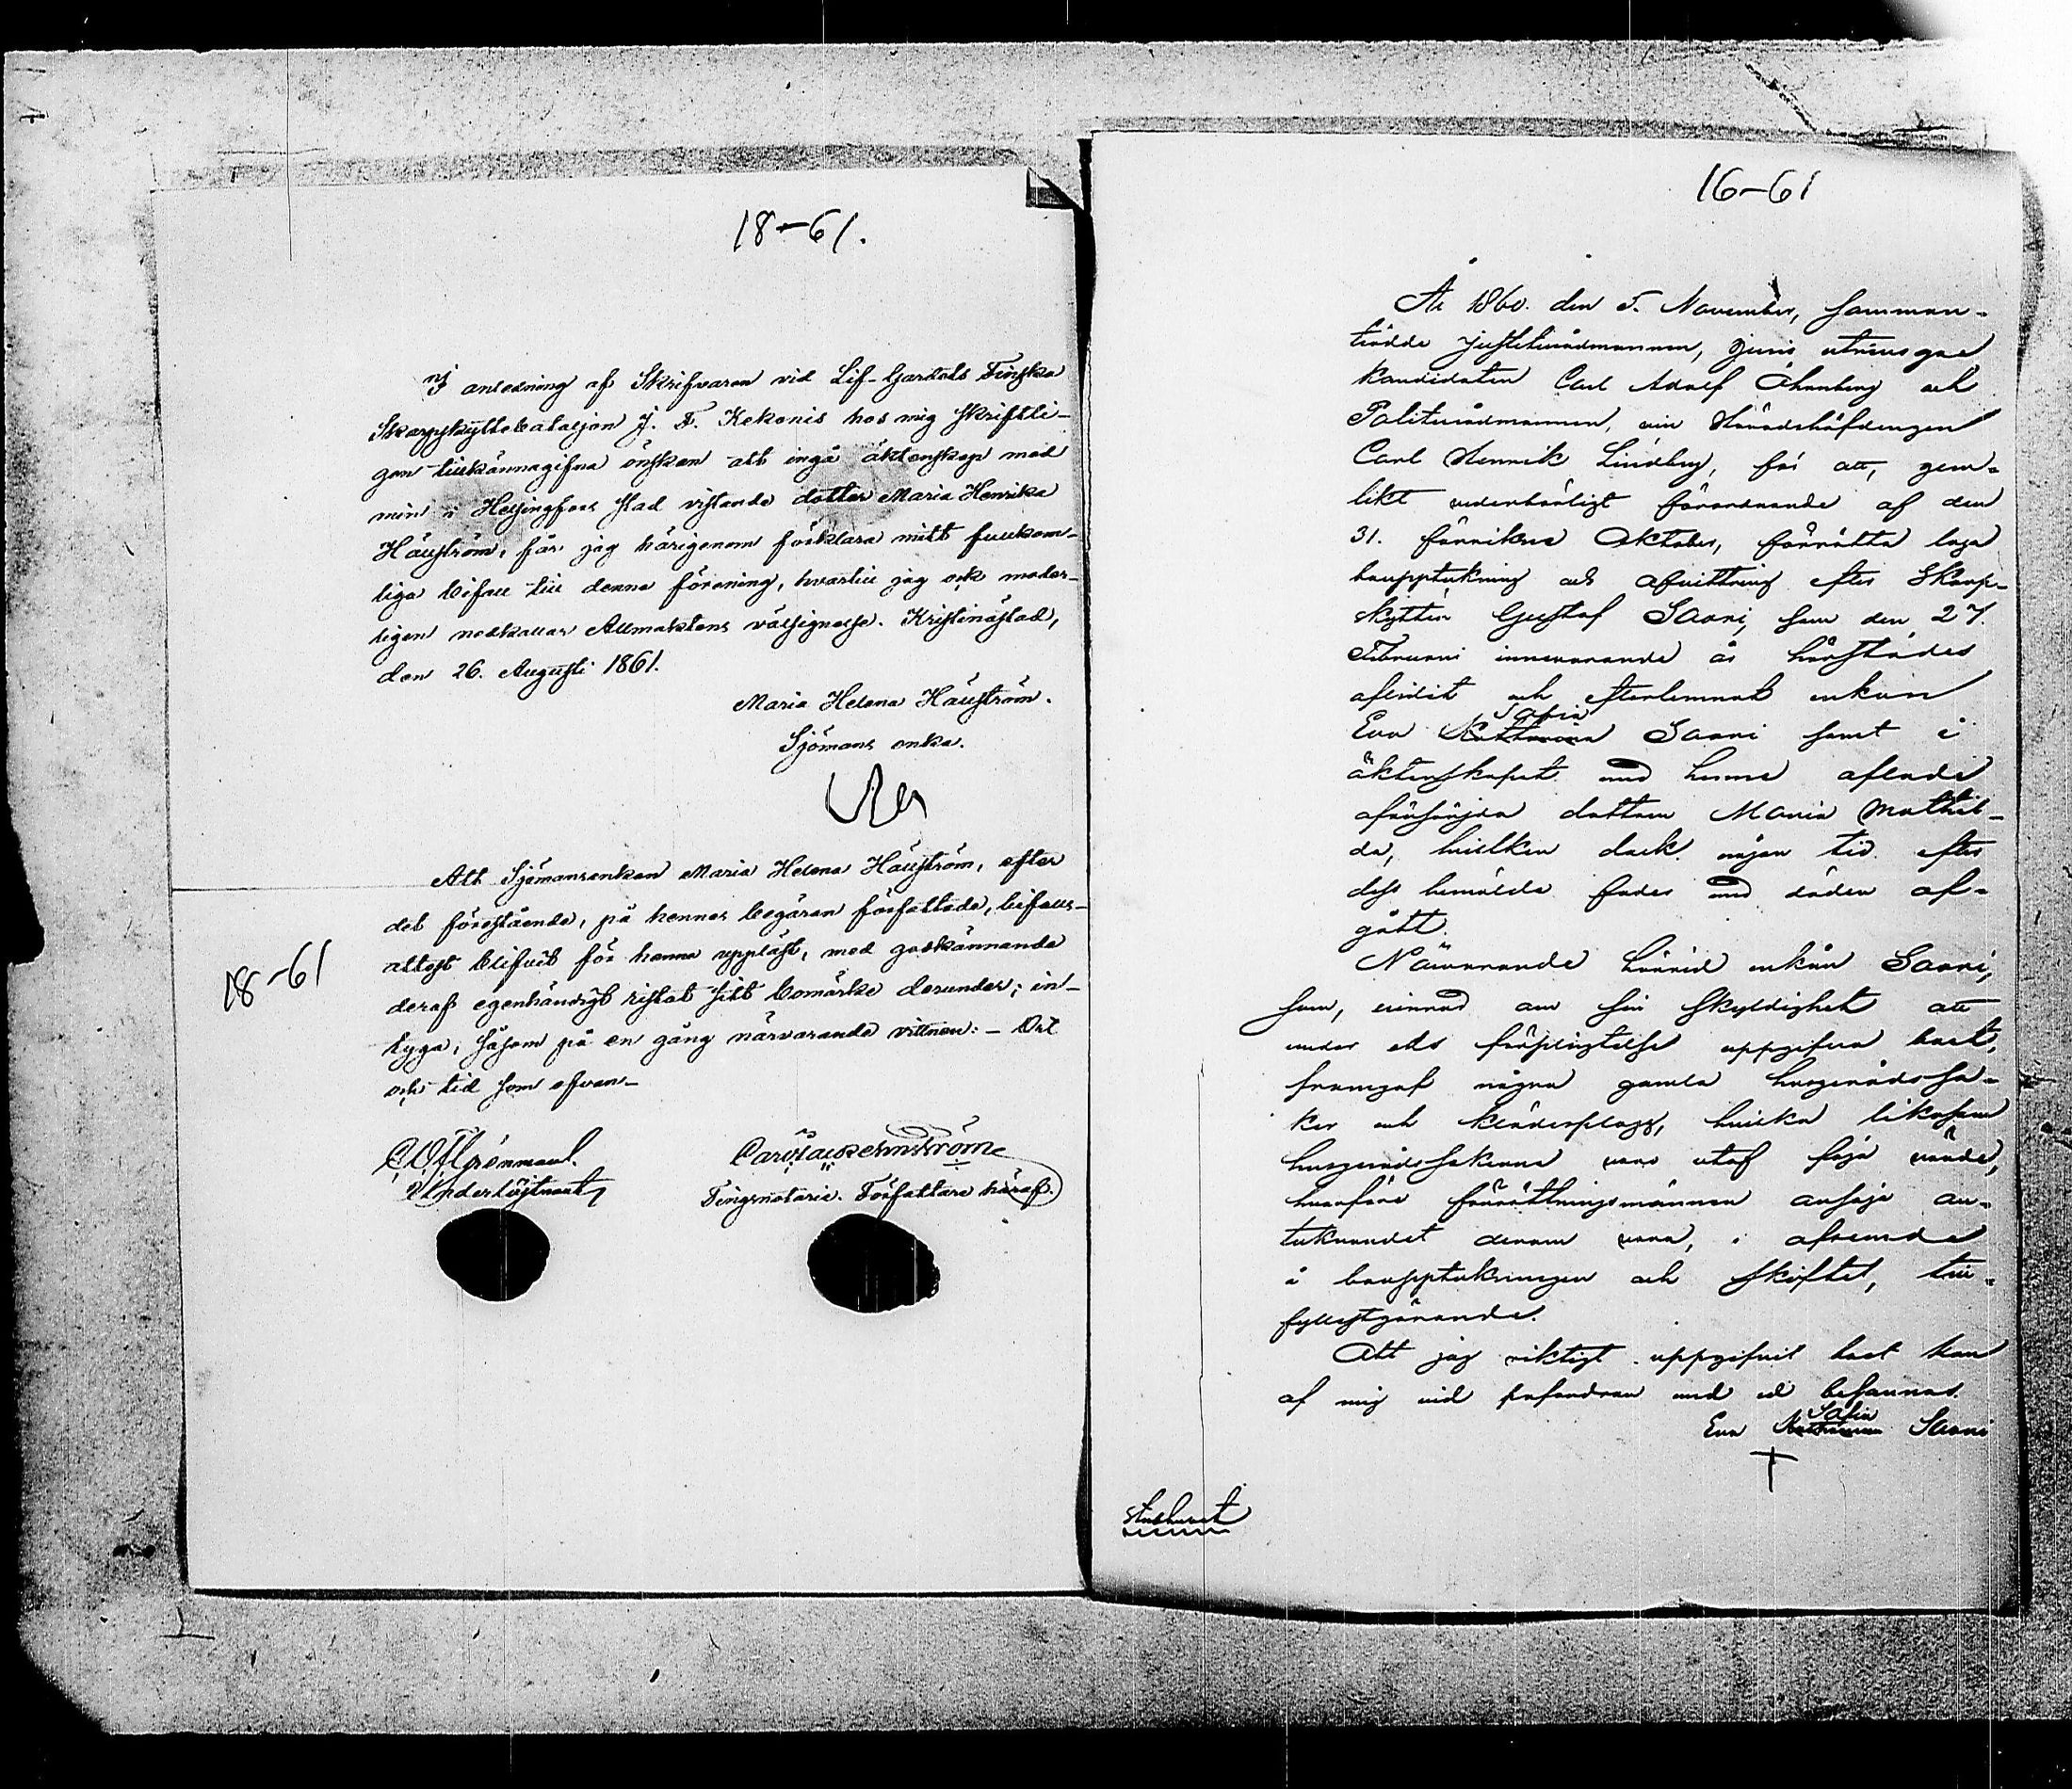 18-61.
I anledning af Skrifvaren vid Lif-Gardets Finska
Skarpskyttebataljon J. F. Kekonis hos mig skriftli-
gen tillkännagifna önskan att ingå äktenskap med
min i Helsingfors stad vistande dotter Maria Henrika
Häuström, får jag härigenom förklara mitt fullkom-
liga bifall till denna förening, hvartill jag ock moder-
ligen nedkallar Allmaktens välsignelse. Kristinæstad,
den 26. Augusti 1861.
Maria Helena Häuström.
Sjömans enka.
Att Sjömansenkan Maria Helena Häuström, efter
det förestående, på hennes begäran författade, bifalls-
attest blifvit för henne uppläst, med godkännande
deraf egenhändigt ristat sitt bomärke derunder; in-
tyga, såsom på en gång närvarande vittnen: - Ort
och tid som ofvan-
18-61
Underlöjtnant
Tingsnotarie. Författare häraf.
16-61
År 1860. den 5. November, samman-
trädde Justitierådmannen, Juris utriusque
kandidaten Carl Adolf Öhrnberg och
Politierådmannen, vice Häradshöfdingen
Carl Henrik Lindberg, för att, jem-
likt vederbörligt förordnande af den
31. förvikne Oktober, förrätta laga
bouppteckning och afvittring efter Skarp-
skytten Gustaf Saari, som den 27.
Februari innevarande år härstädes
aflidit och efterlemnat enkan
Eva Sofia Saari samt i
äktenskapet med henne aflade
oförsörjda dottren Maria Mathil-
da, hvilken dock någon tid efter
dess bemälde fader med döden af-
gått.
Närvarande härvid enkan Saari,
som, erinrad om sin skyldighet att
under eds förpligtelse uppgifva boet,
framgaf några gamla husgerådssa-
ker och klädesplagg, hvilka likasom
husgerådssakerna voro utaf föga värde,
hvarföre förrättningsmännen ansågo an-
tecknandet derom vara, i afseende
å bouppteckningen och skiftet, till-
fyllestgörande.
Att jag riktigt uppgifvit boet kan
af mig vid påfordran med ed besannas.
Eva Sofia Saari